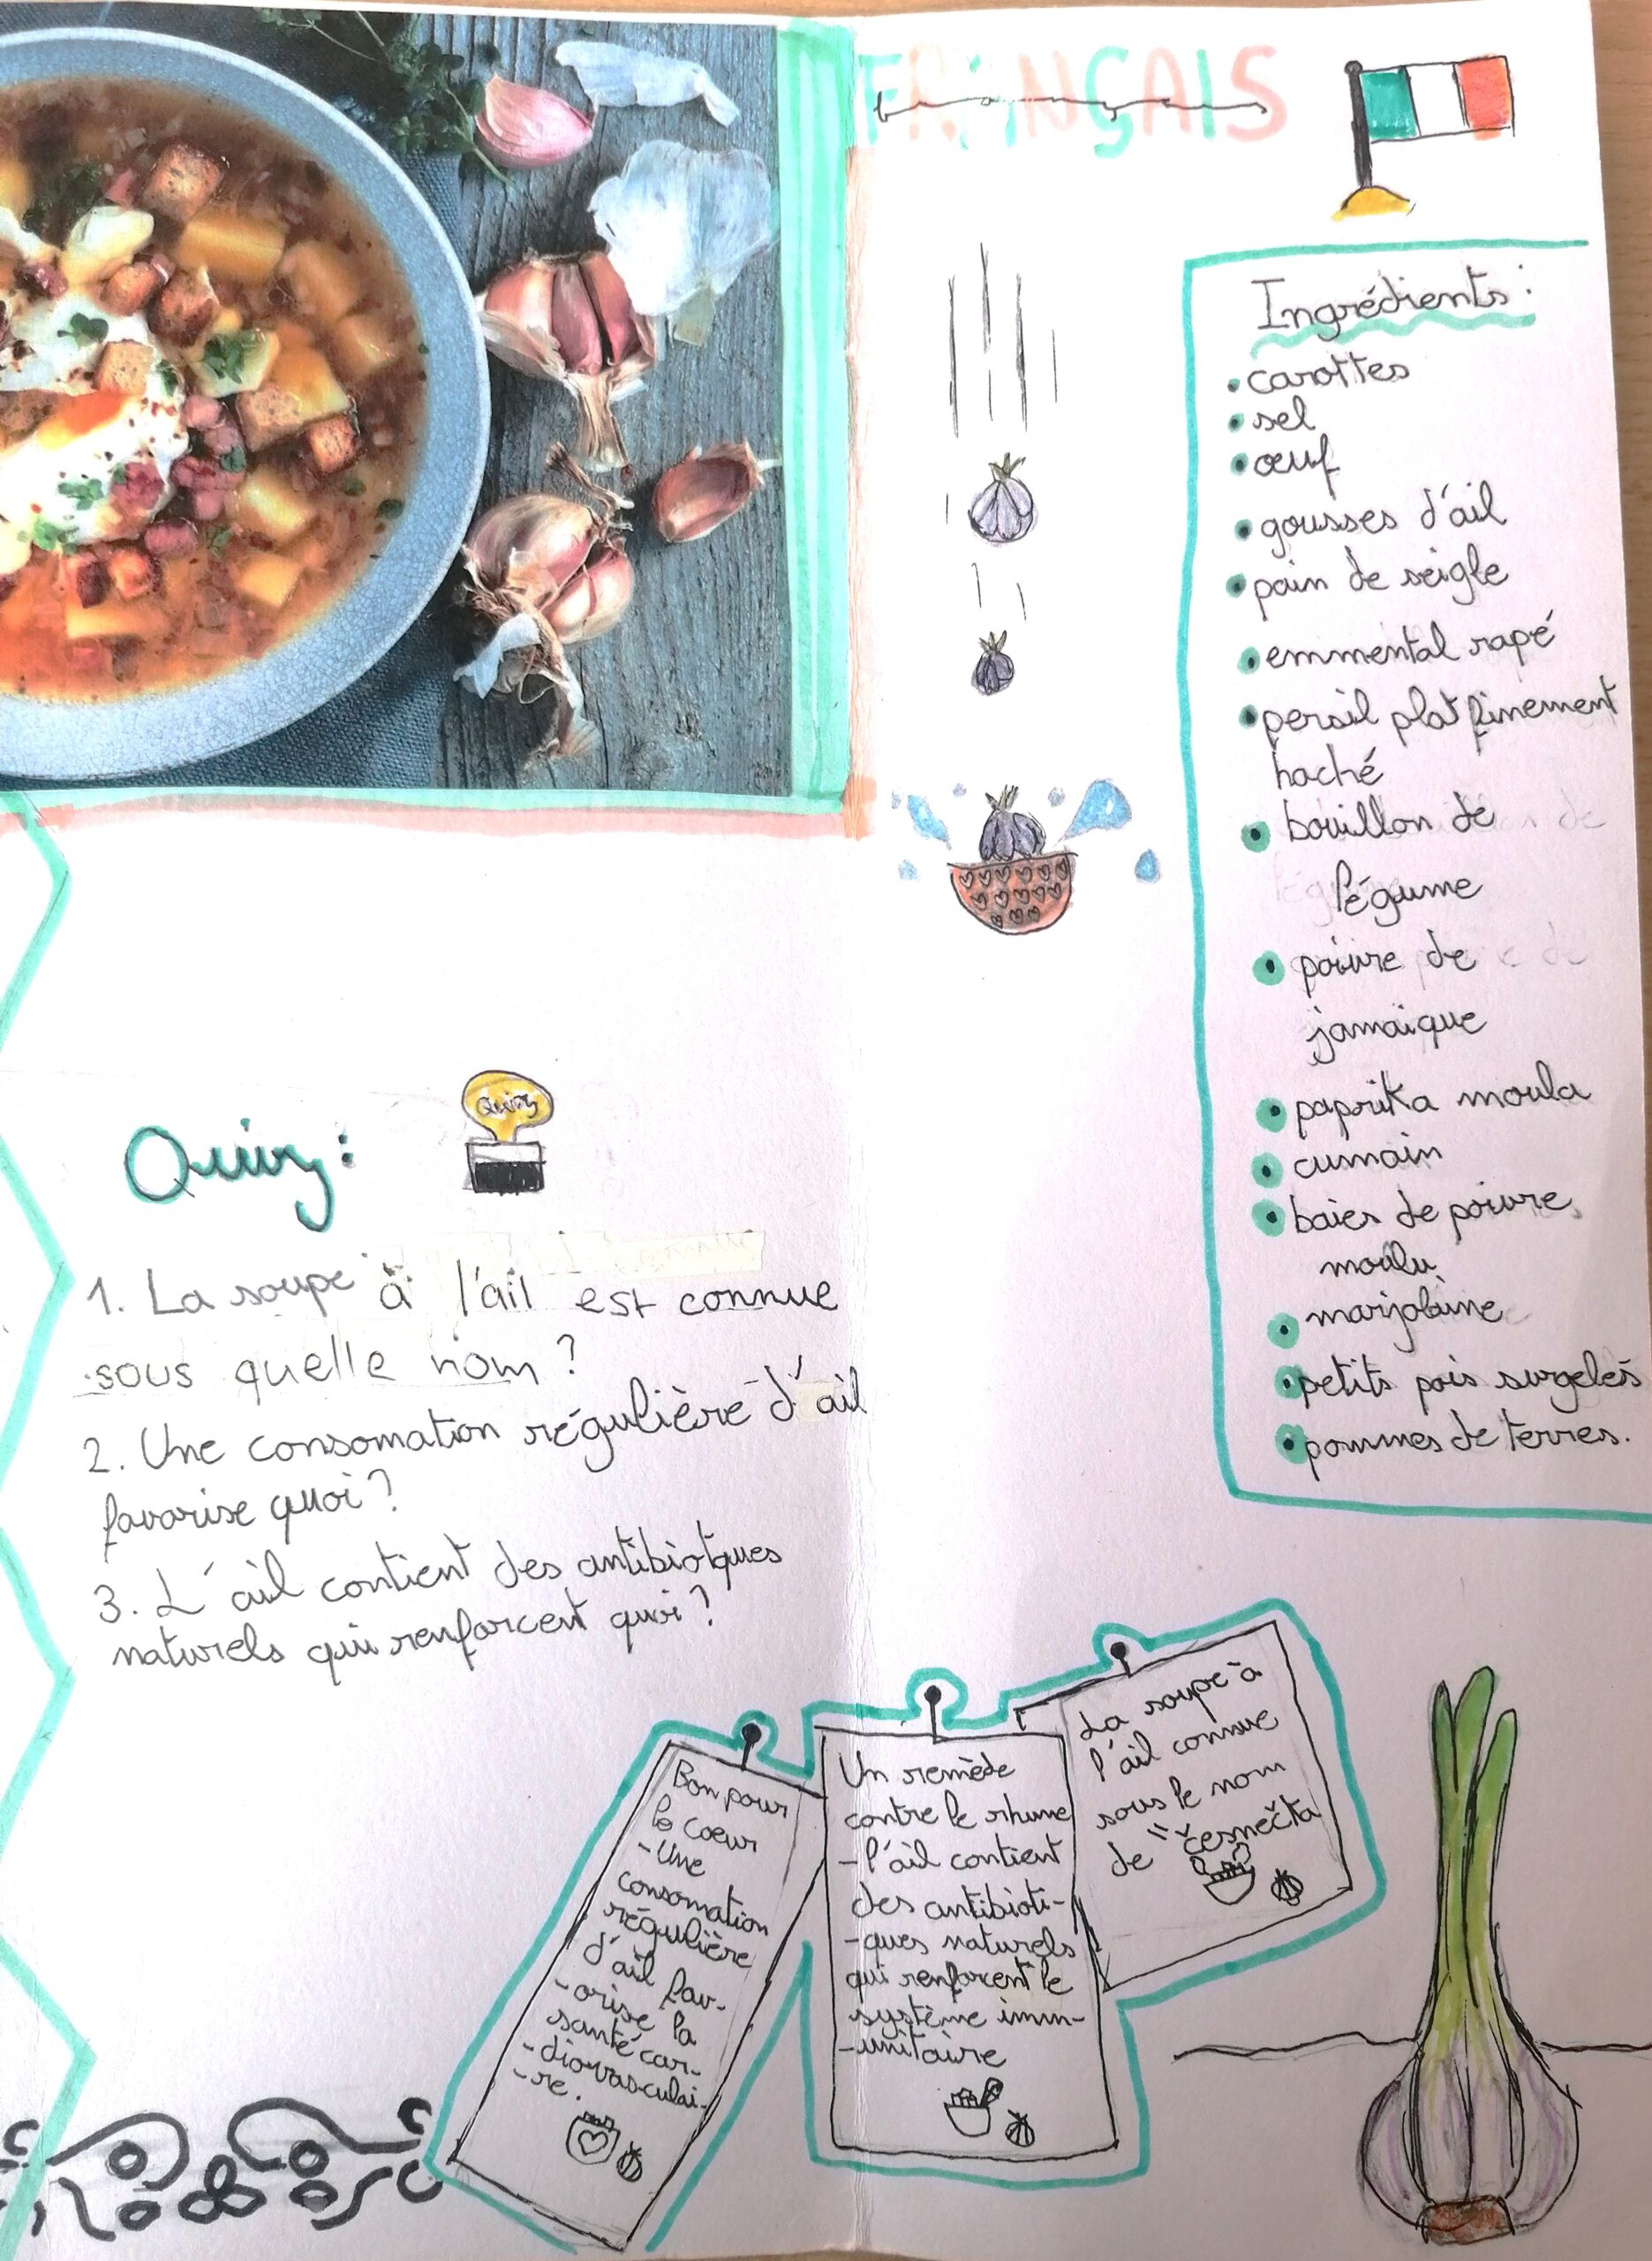 FRANÇAIS
Ingrédients :
• carottes
• sel
• œuf
• gousses d'ail
• pain de seigle
• emmental rapé
• persil plat finement
haché
• bouillon de
légume
• poivre de
jamaique
• paprika moula
• cumain
• baies de poivre
moulu
• marjolaine
• petits pois surgelés
• pommes de terres.
Quizz :
Quizz
1. La soupe à l'ail est connue
sous quelle nom ?
2. Une consomation régulière d'ail
favorise quoi ?
3. L'ail contient des antibiotques
naturels qui renforcent quoi ?
Bon pour
le coeur
-Une
consomation
régulière
d'ail fav-
-orise la
santé car-
-diovasculai-
-re.
Un remède
contre le rhume
-l'ail contient
des antibioti-
-ques naturels
qui renforcent le
système imm-
-unitaire
La soupe à
l'ail connue
sous le nom
de "česnečta